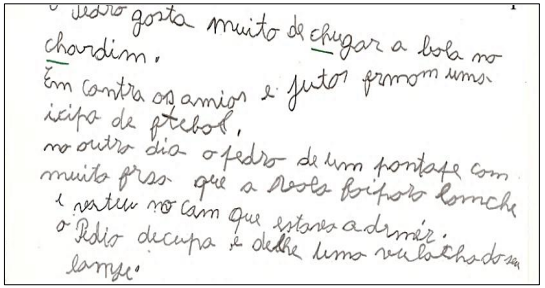 o Pedro gosta muito de chugar a bola no
chardim.
Em contra os amios e jutos frmom uma
icipa de ftebol.
no outro dia o pedro de um pontafe com
muita frsa que a bola foi para lomche
i vateu no cam que estava a drmir.
o Pedio decupa e delhe uma vulacha do seu
lamxe.